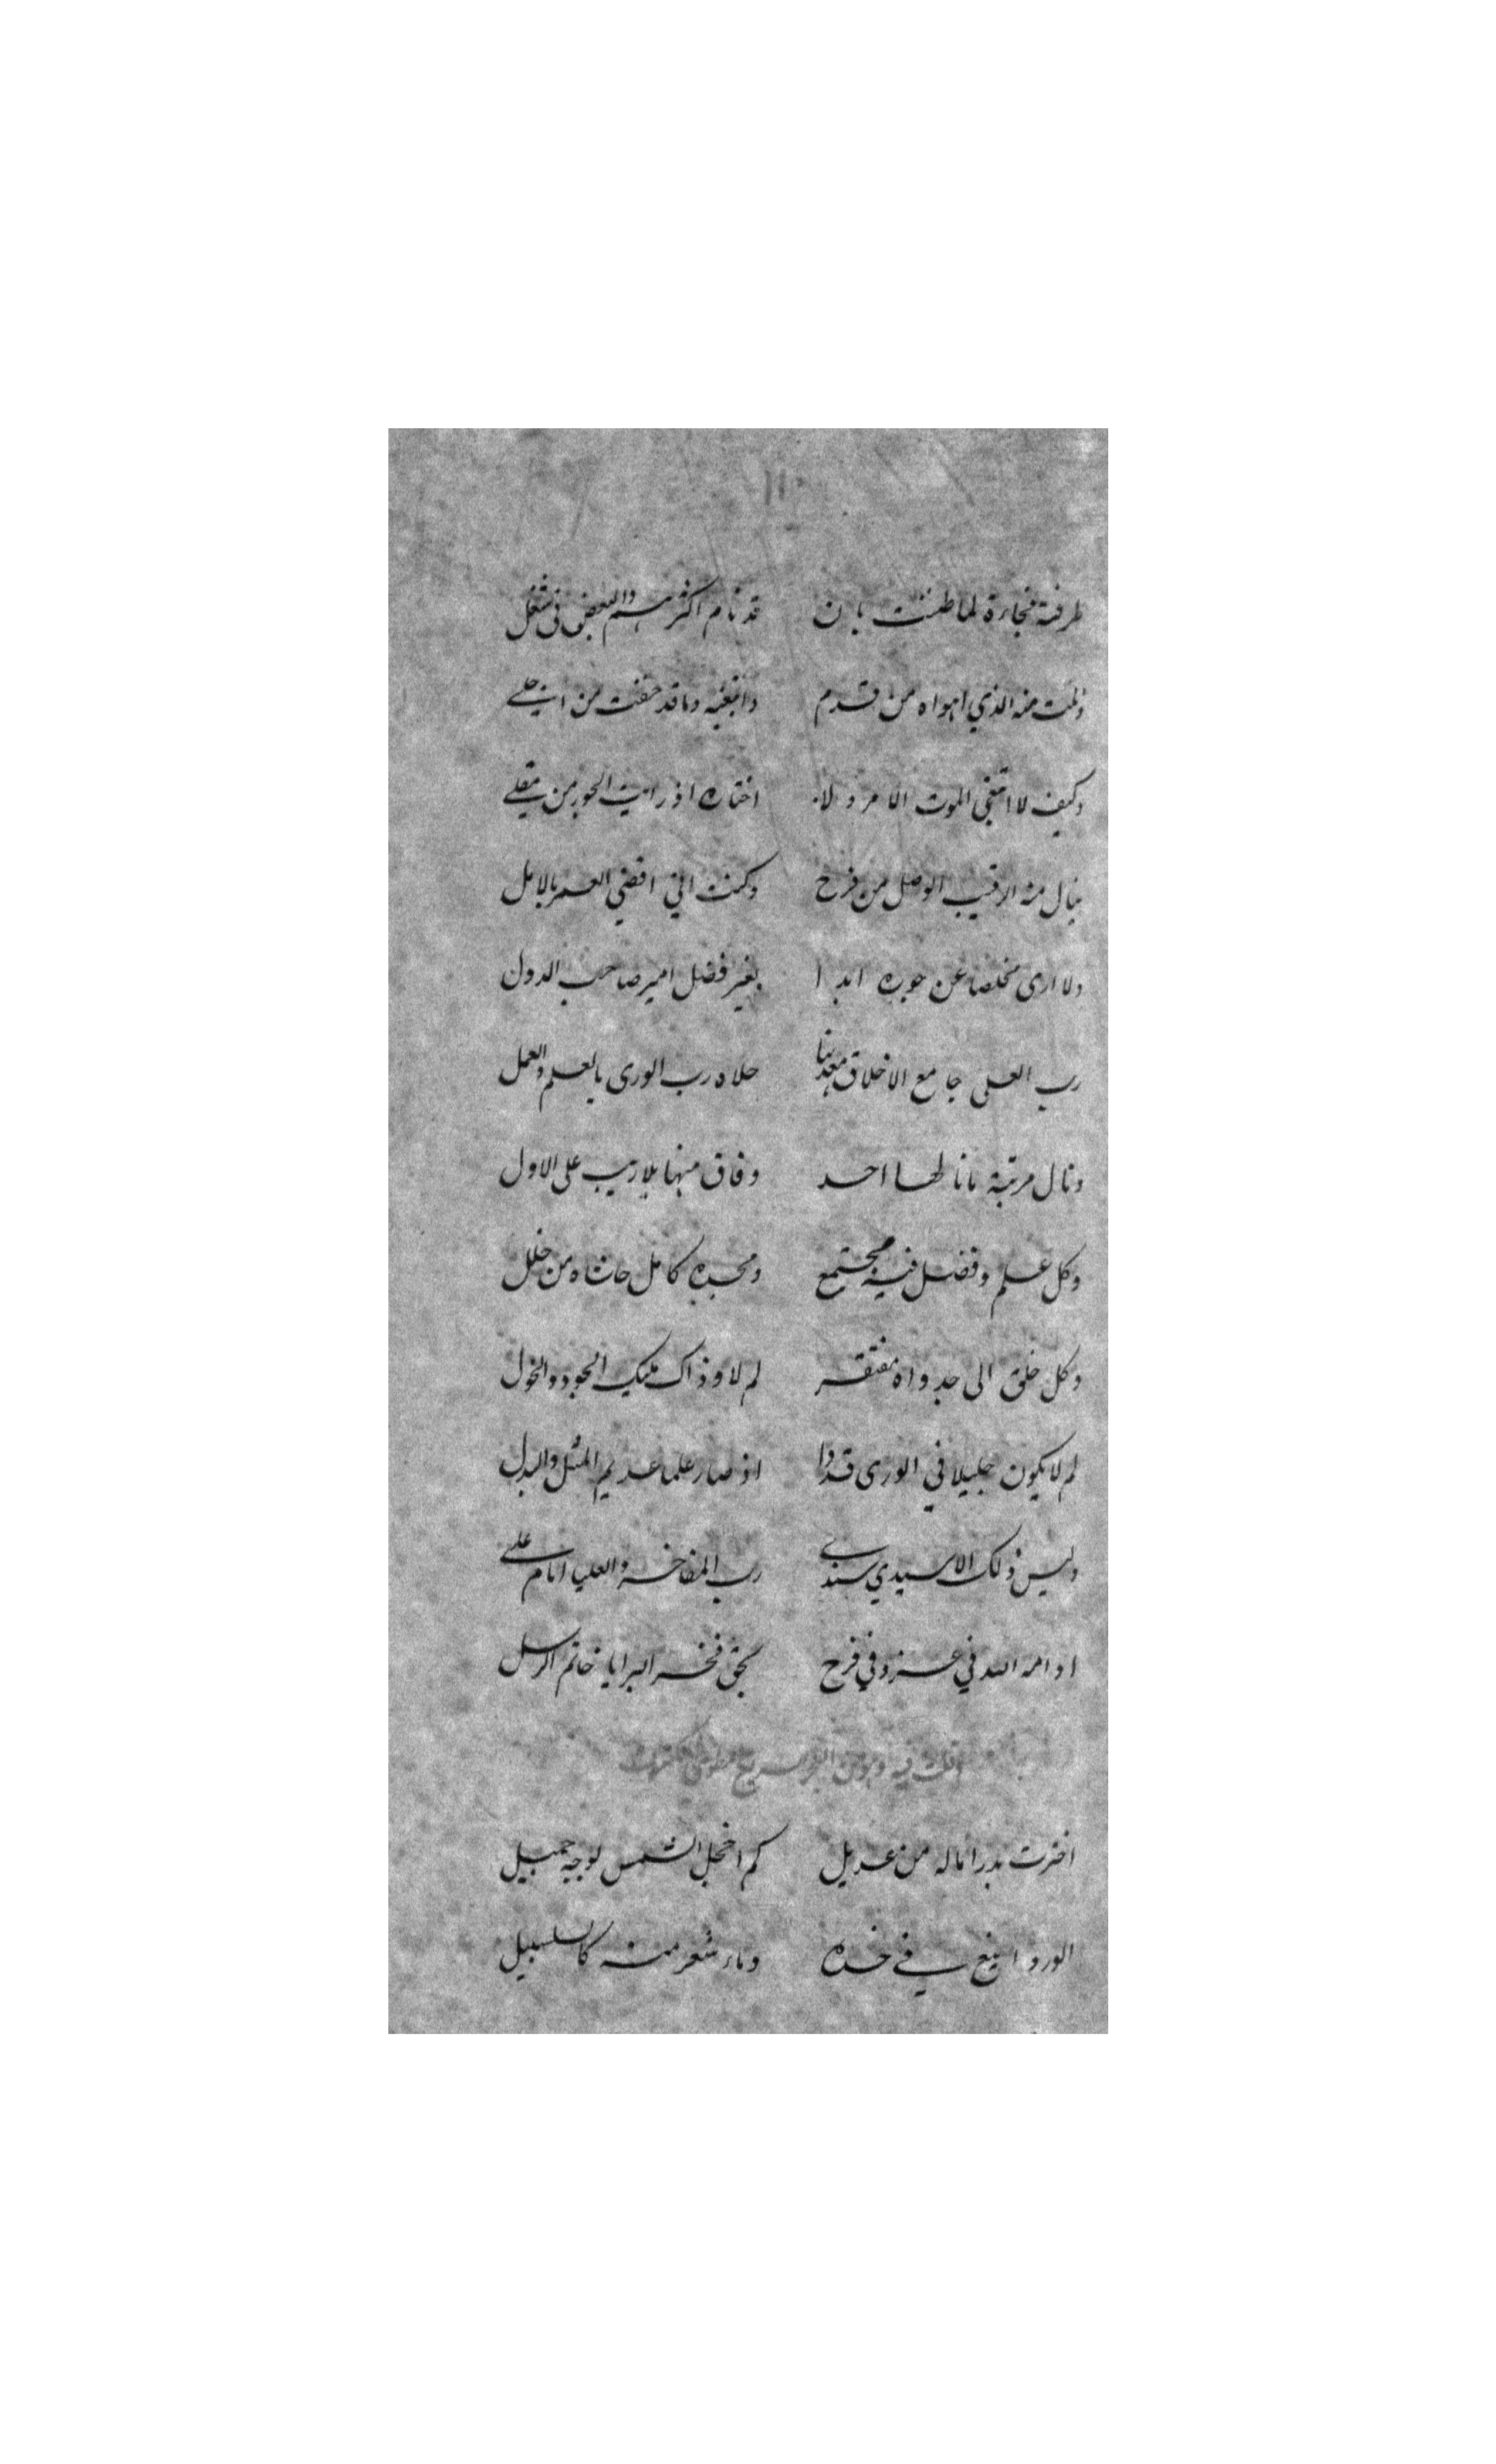 ١١٠
طرفته فجاءة لما ظننت بان قد نام اكثرهم والبعض فى شغل
ونلت منه الذي اهواه من قدم وابتغيه وما قد خفت من اجلے
وكيف لا ابتغى الموت الامر ولا اختاره اذ رايت الجور من مقلے
ينال منه الرقيب الوصل من فرح وكنت انى اقضي العمر بالامل
ولا ارى مخلصا عن جوره ابدا بغير فضل امير صاحب الدول
رب العلى جامع الاخلاق معدنها حلاه رب الورى بالعلم والعمل
ونال مرتبة مانالها احد وفاق منها بلا ريب على الاول
وكل علم وفضل فيه مجتمع ومجده كامل حاشاه من خلل
وكل خلق الى جدواه مفتقر لم لا وذاك مليك الجود والخول
لم لا يكون جليلا في الورى قدرا اذ صار علما عديم المثل والبدل
وليس ذلك الا سيدي سندے رب المفاخر والعليا امام علے
ادامه الله في عز وفي فرح بحق فخر البرايا خاتم الرسل
وقلت فيه وهو من البحر السريع
اخترت بدرا ماله من عديل كم اخجل الشمس لوجه جميل
الورد اينع في خده وماء شعر منه كالسلسبيل